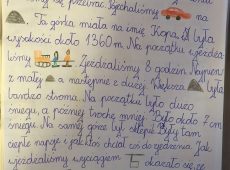 się przebrać. Pojechaliśmy na
Ta górka miała na imię Kopa. Była
wysokości około 1360 m. Na początku wjeżdża-
liśmy Zjeżdżaliśmy 8 godzin. Najpierw
z małej a następnie z dużej. Większa była
bardzo stroma. Na początku było dużo
śniegu, a poźniej trochę mniej. Było około 2 cm
śniegu. Na samej górze był sklep. Były tam
ciepłe napoje i jakieś
wjeżdżaliśmy wyciągiem okazało się, że